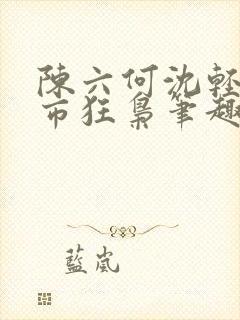 陳六何沈輕
市狂梟筆趣
藍嵐